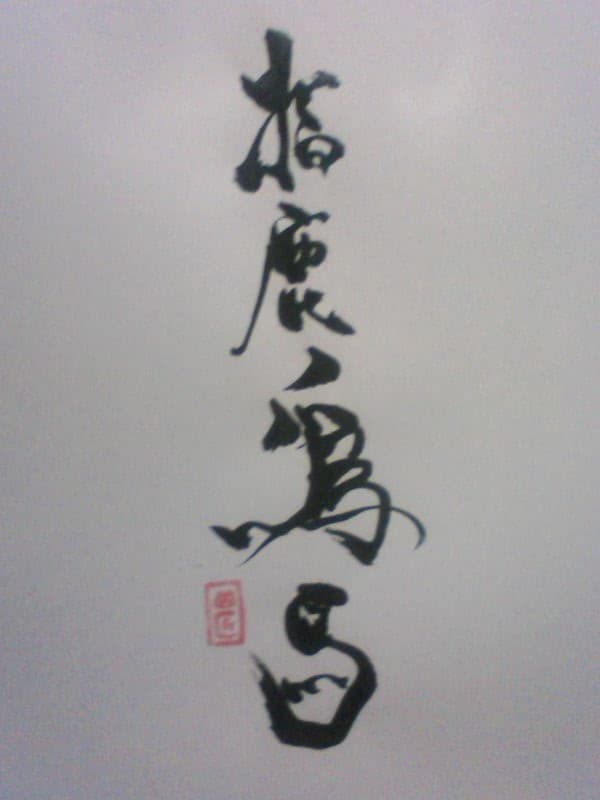 指鹿為馬